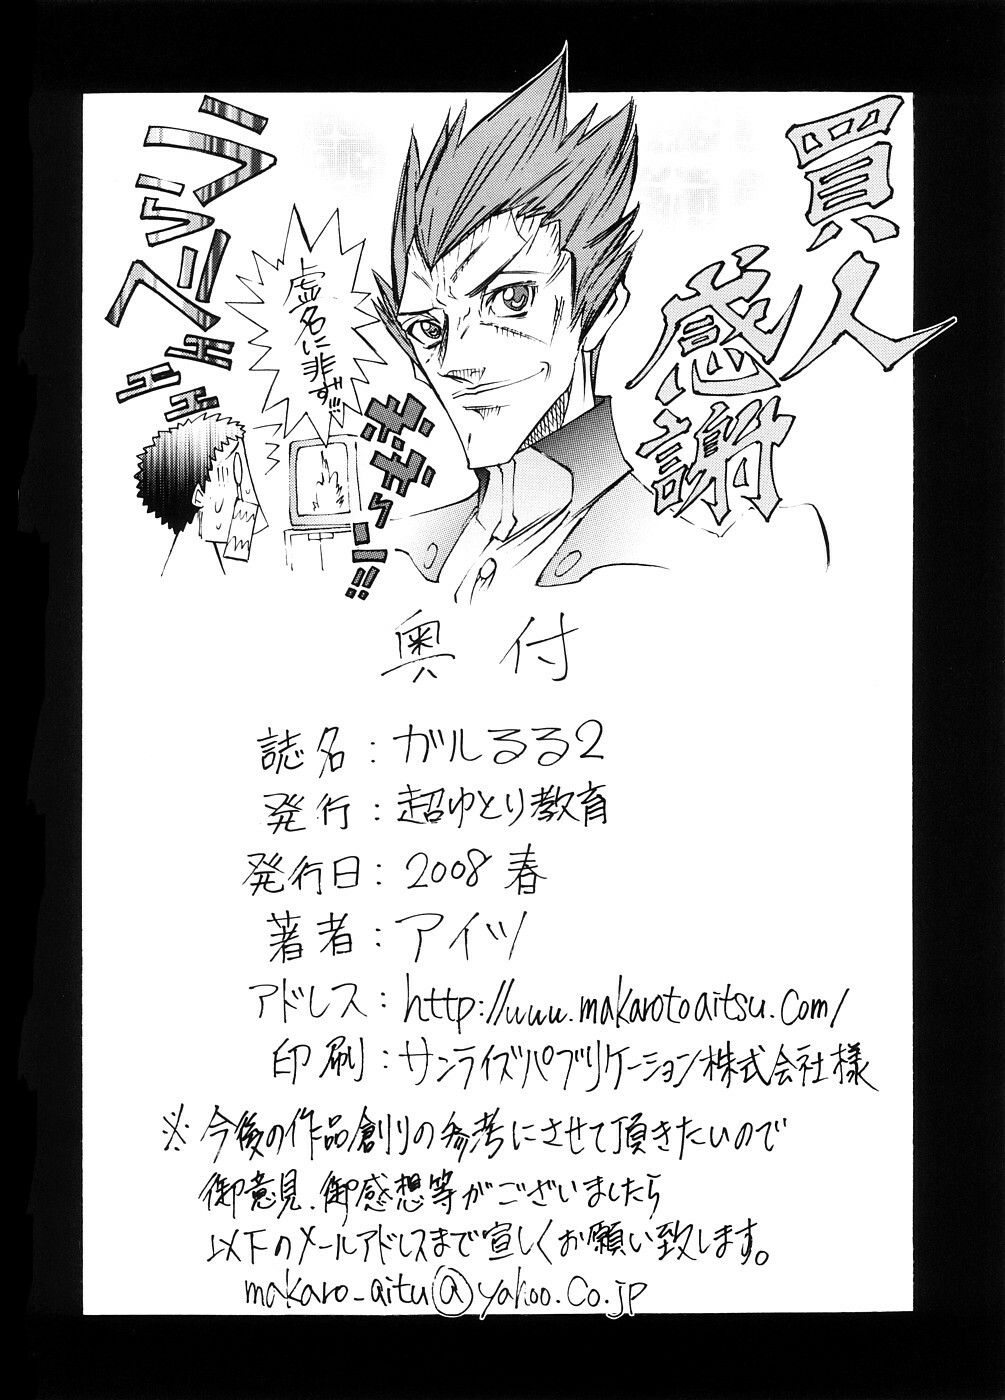 買人
感謝
虚名に非ず!!!
ギュデデーン!!
ララベェエエエ
奥付
誌名：ガルるる2
発行：超ゆとり教育
発行日：2008 春
著者：アイツ
アドレス：http://www.makarotoaitsu.com/
印刷：サンライズパブリケーション株式会社様
※今後の作品創りの参考にさせて頂きたいので
御意見、御感想等がございましたら
以下のメールアドレスまで宜しくお願い致します。
makaro_aitu@yahoo.co.jp